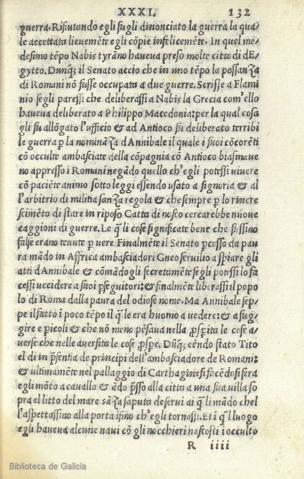 XXXI. 132
guerra. Rifiutando egli fugli dinonciato la guerra la qua
le accettata lieuemẽte egli cõpie infelicemẽte. In quel me
desimo tẽpo Nabis tyrãno haueua preso molte citta di dE
gytto. Dunq; il Senato accio che in uno tẽpo la possanza
di Romani nõ fusse occupata a due guerre. Scrisse a Flami
nio se gli paresse che deliberassi a Nabis la Grecia com'ello
haueua deliberato a Philippo Macedonia: per la qual cosa
gli fu allogato l'ufficio & ad Antioco fu deliberato terribi
le guerra p la nominãza d'Annibale il quale i suoi cõcorẽti
cõ occulte ambasciate della cõpagnia cõ Antioco biasimaue
no appresso i Romani negãdo quello ch'egli potessi uiuere
cõ paciẽte animo sotto leggi essendo usato a signoria & al
l'arbitrio di militia sanza regola & che sempre p lo rincre
scimẽto di stare in riposo
cercarebbe nuoue
caggioni di guerra. Le q̃li cose significate bene che fussino
false erano tenute p uere. Finalmẽte il Senato pcosso da pau
ra mãdo in Affrica ambasciadori Gneo seruilio a spiare gli
atti d'Annibale & cõmãdogli secretamẽte se gli potessi lo fa
cessi uccidere a suoi pseguitori: & finalmẽte liberassi il popo
lo di Roma dalla paura del odioso nome. Ma Annibale sep
pe il fatto ĩ poco tẽpo il q̃le era huomo a uedere: & a fug
gire e picoli & che nõ meno pẽsaua nella pspita le cose a
uerse che nelle auersita le cose pspe. Dũq; cẽndo stato Tito
el di in psentia de principi dell'ambasciadore de Romani:
& ultimamẽte nel pallagio di Carthagine si fece dosi sera
egli mõto a cauallo & ãdo psso alla citta a una sua uilla so
pra el litto del mare sãza saputa de serui a q̃li mãdo chel
l'aspettassino alla porta ĩfino ch'egli tornassi. Et ĩ q̃l luogo
egli haueua alcune naui cõ gli nocchieri nascosti ĩ occulto
R iiii
Biblioteca de Galicia